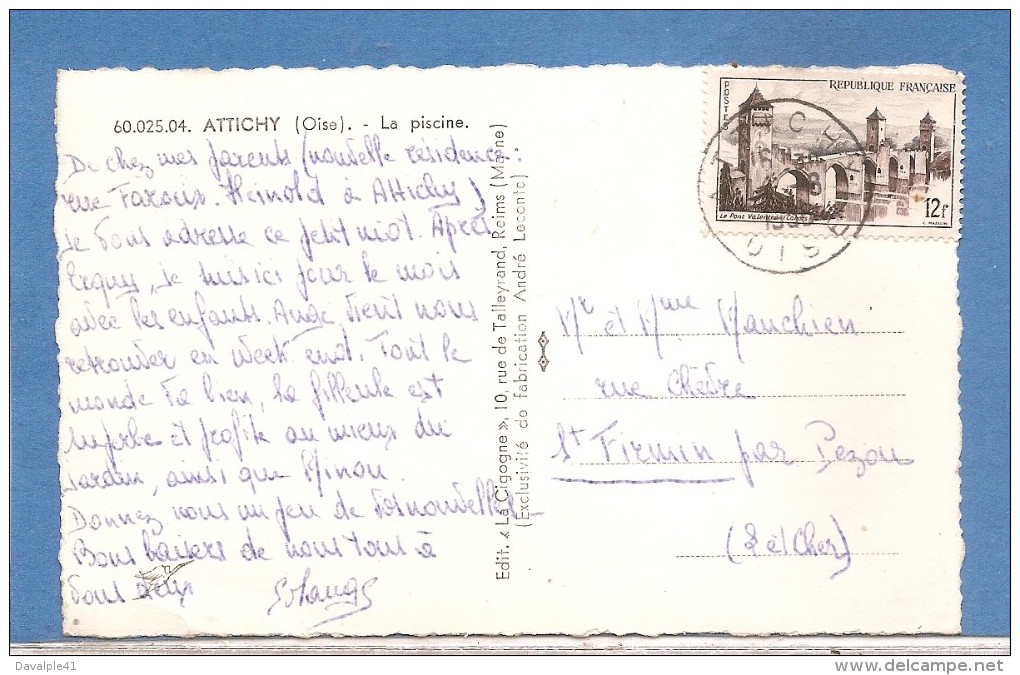 60.025.04. ATTICHY (Oise). - La piscine.
De chez mes parents (nouvelle résidence :
rue Heinold à Attichy)
Je vous adresse ce petit mot. Après
Lequy, je suis ici pour le mois
avec les enfants. vient nous
retrouver en week end. Tout le
monde va bien, la filleule est
superbe et profite au mieux du
jardin, ainsi que Minou.
Donnez nous un peu de vos nouvelles
Bons baisers de nous tous à
vous deux Solange
Edit. « La Cigogne », 10, rue de Talleyrand, Reims (Marne)
(Exclusivité de fabrication André Leconte)
POSTES
REPUBLIQUE FRANÇAISE
Le Pont Valentré à Cahors
12f
C. MAZELIN
OISE
Mr et Mme Manchien
rue Chèvre
St Firmin par Pezou
(L et Cher)
Davalple41
www.delcampe.net